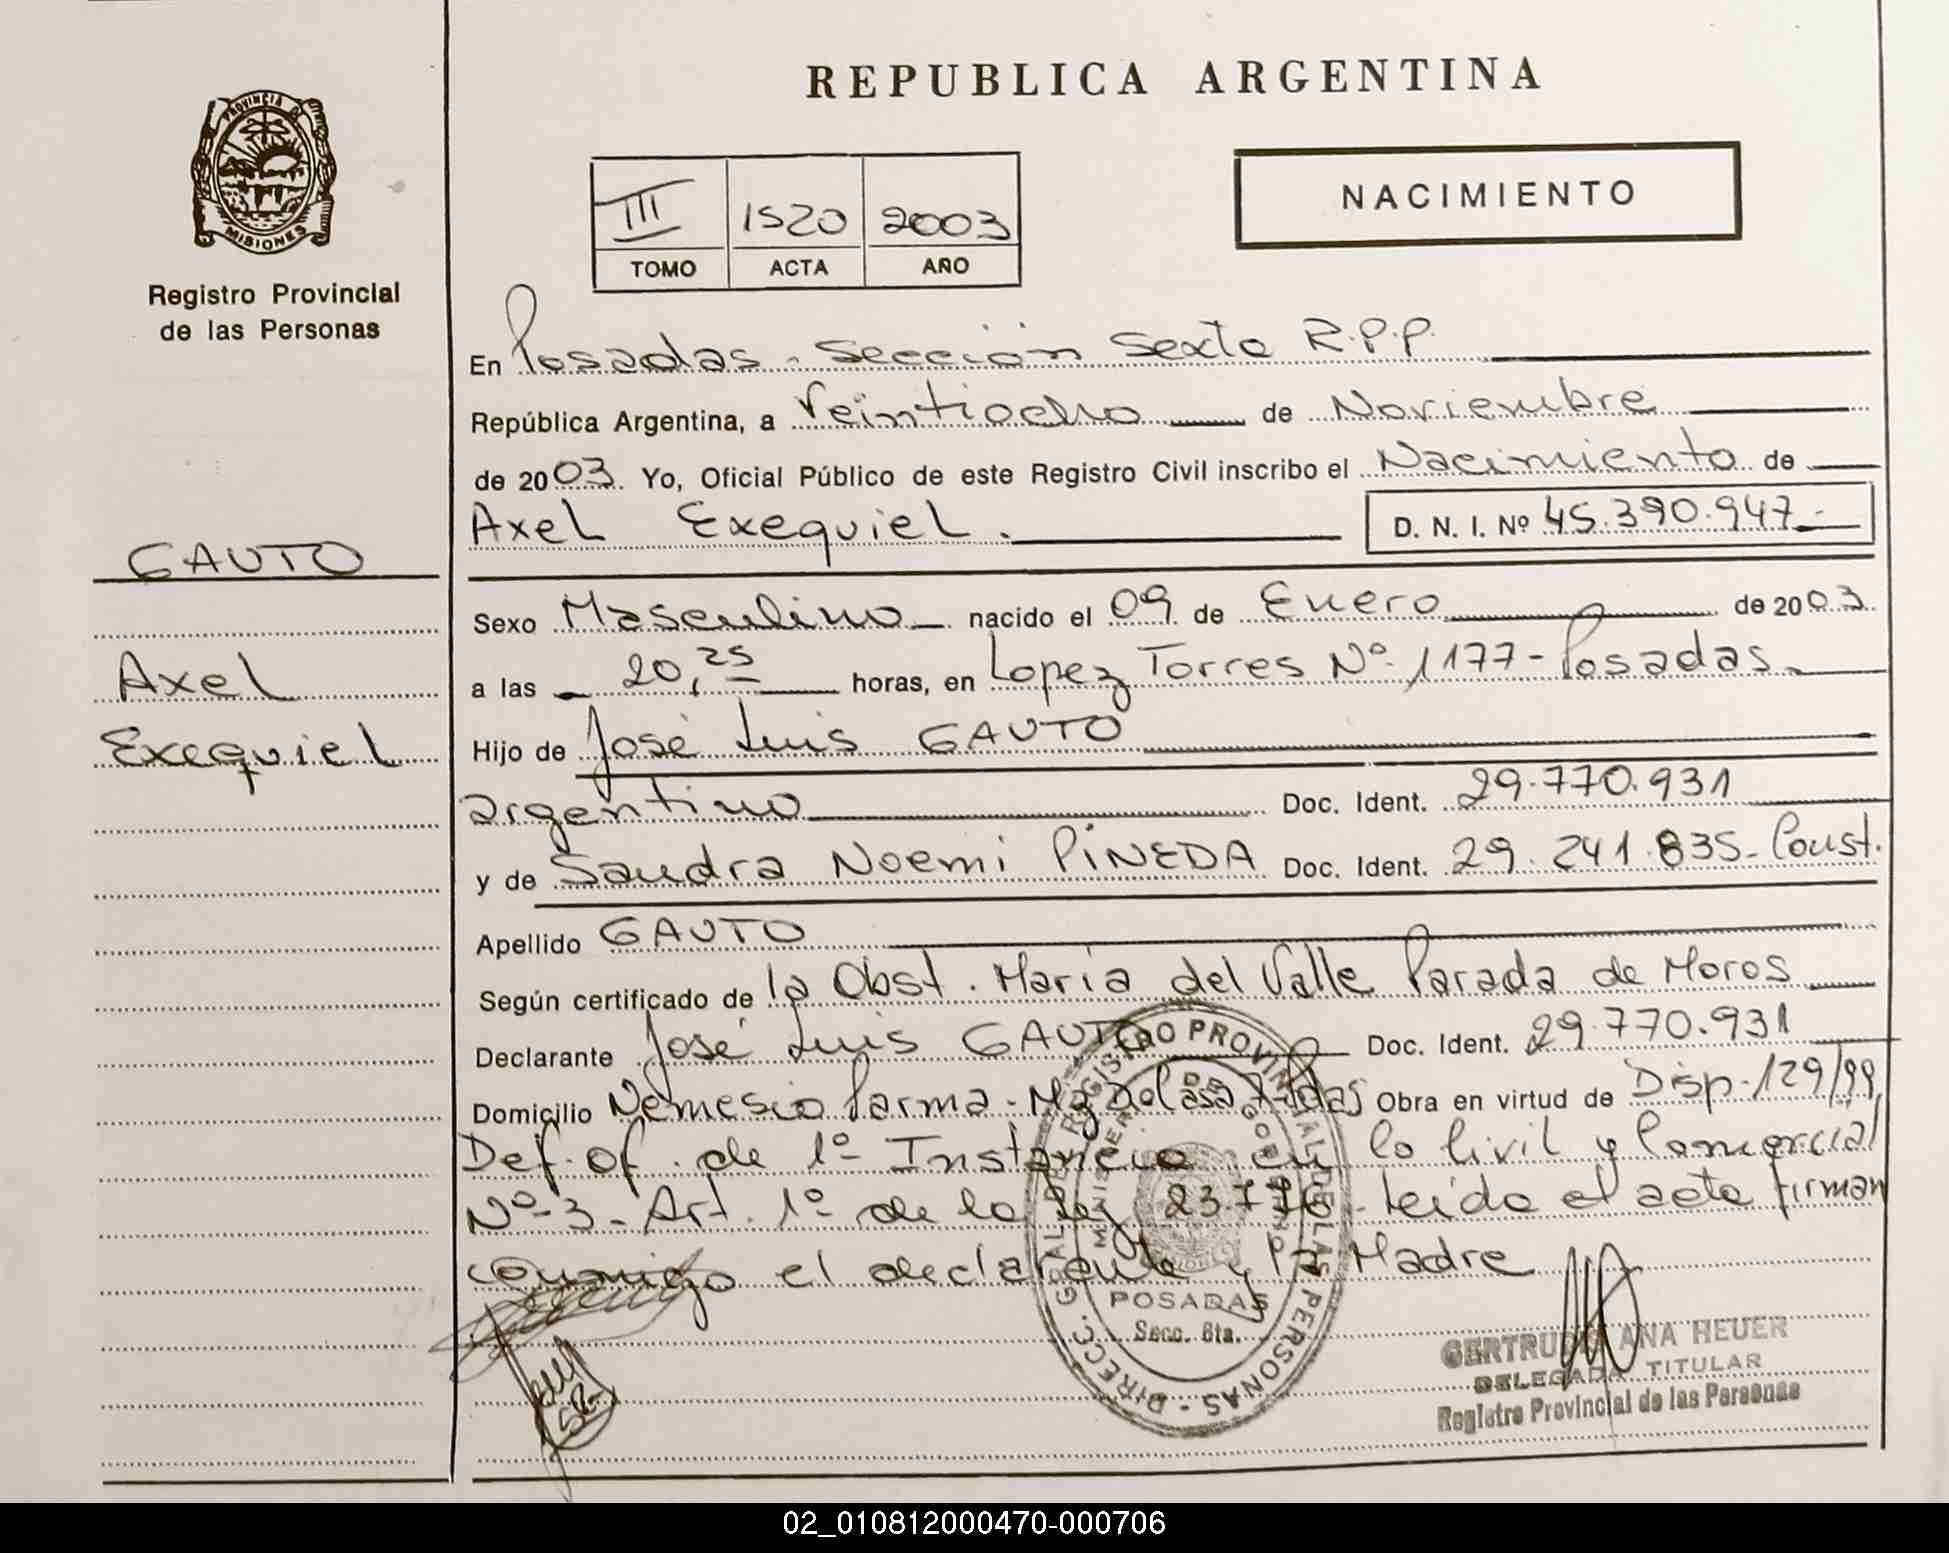 REPUBLICA ARGENTINA
PROVINCIA DE
MISIONES
Registro Provincial
de las Personas
III 1520 2003
TOMO ACTA AÑO
NACIMIENTO
En Posadas - Sección Sexta R.P.P.
República Argentina, a Veintiocho de Noviembre
de 2003. Yo, Oficial Público de este Registro Civil inscribo el Nacimiento de
Axel Exequiel. D. N. I. Nº 45.390.947-
GAUTO
Axel
Exequiel
Sexo Masculino nacido el 09 de Enero de 2003.
a las 20,25 horas, en Lopez Torres Nº 1177 - Posadas
Hijo de José Luis GAUTO
argentino Doc. Ident. 29.770.931
y de Sandra Noemi PINEDA Doc. Ident. 29.241.835- Const.
Apellido GAUTO
Según certificado de la Obst. Maria del Valle Parada de Moros
Declarante José Luis GAUTO Doc. Ident. 29.770.931
Domicilio Nemesio Parma - Obra en virtud de Disp. 129/99
Def. of. de 1º Instancia en lo Civil y Comercial
Nº 3 - Art. 1º de la Ley 23.776 - leída el acta firman
conmigo el declarante y la Madre
DIRECC. GRAL. DEL REGISTRO PROVINCIAL DE LAS PERSONAS
MINISTERIO DE GOBIERNO
POSADAS
Secc. 6ta.
GERTRUDIS ANA HEUER
DELEGADA TITULAR
Registro Provincial de las Personas
02_010812000470-000706